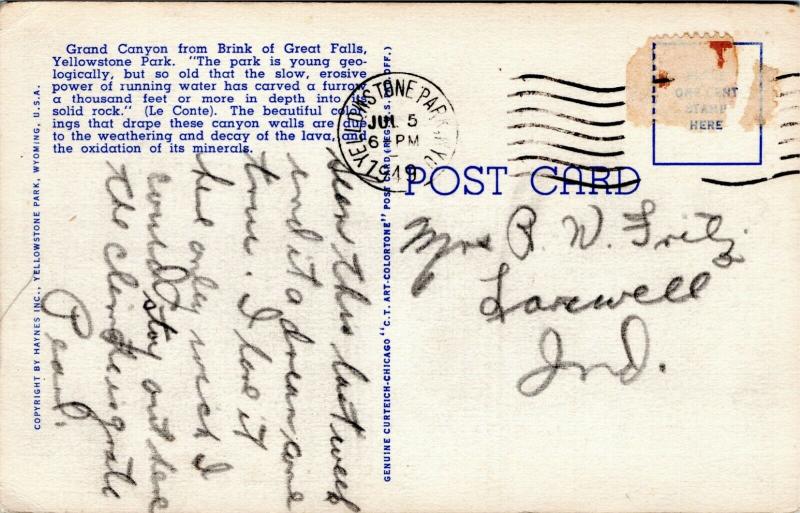 Grand Canyon from Brink of Great Falls,
Yellowstone Park. "The park is young geo-
logically, but so old that the slow, erosive
power of running water has carved a furrow
a thousand feet or more in depth into its
solid rock." (Le Conte). The beautiful color-
ings that drape these canyon walls are due
to the weathering and decay of the lava, and
the oxidation of its minerals.
COPYRIGHT BY HAYNES INC., YELLOWSTONE PARK, WYOMING, U.S.A.
Seen this last week
and it a dream come
true. I love it
here only wish I
could stay out here
the climate is great
Pearl.
GENUINE CURTEICH-CHICAGO "C.T. ART-COLORTONE" POST CARD (REG. U.S. PAT. OFF.)
YELLOWSTONE PARK, WYO.
JUL 5
6 PM
1949
POST CARD
PLACE
ONE CENT
STAMP
HERE
Mrs R. W. Fritz
Larwell
Ind.